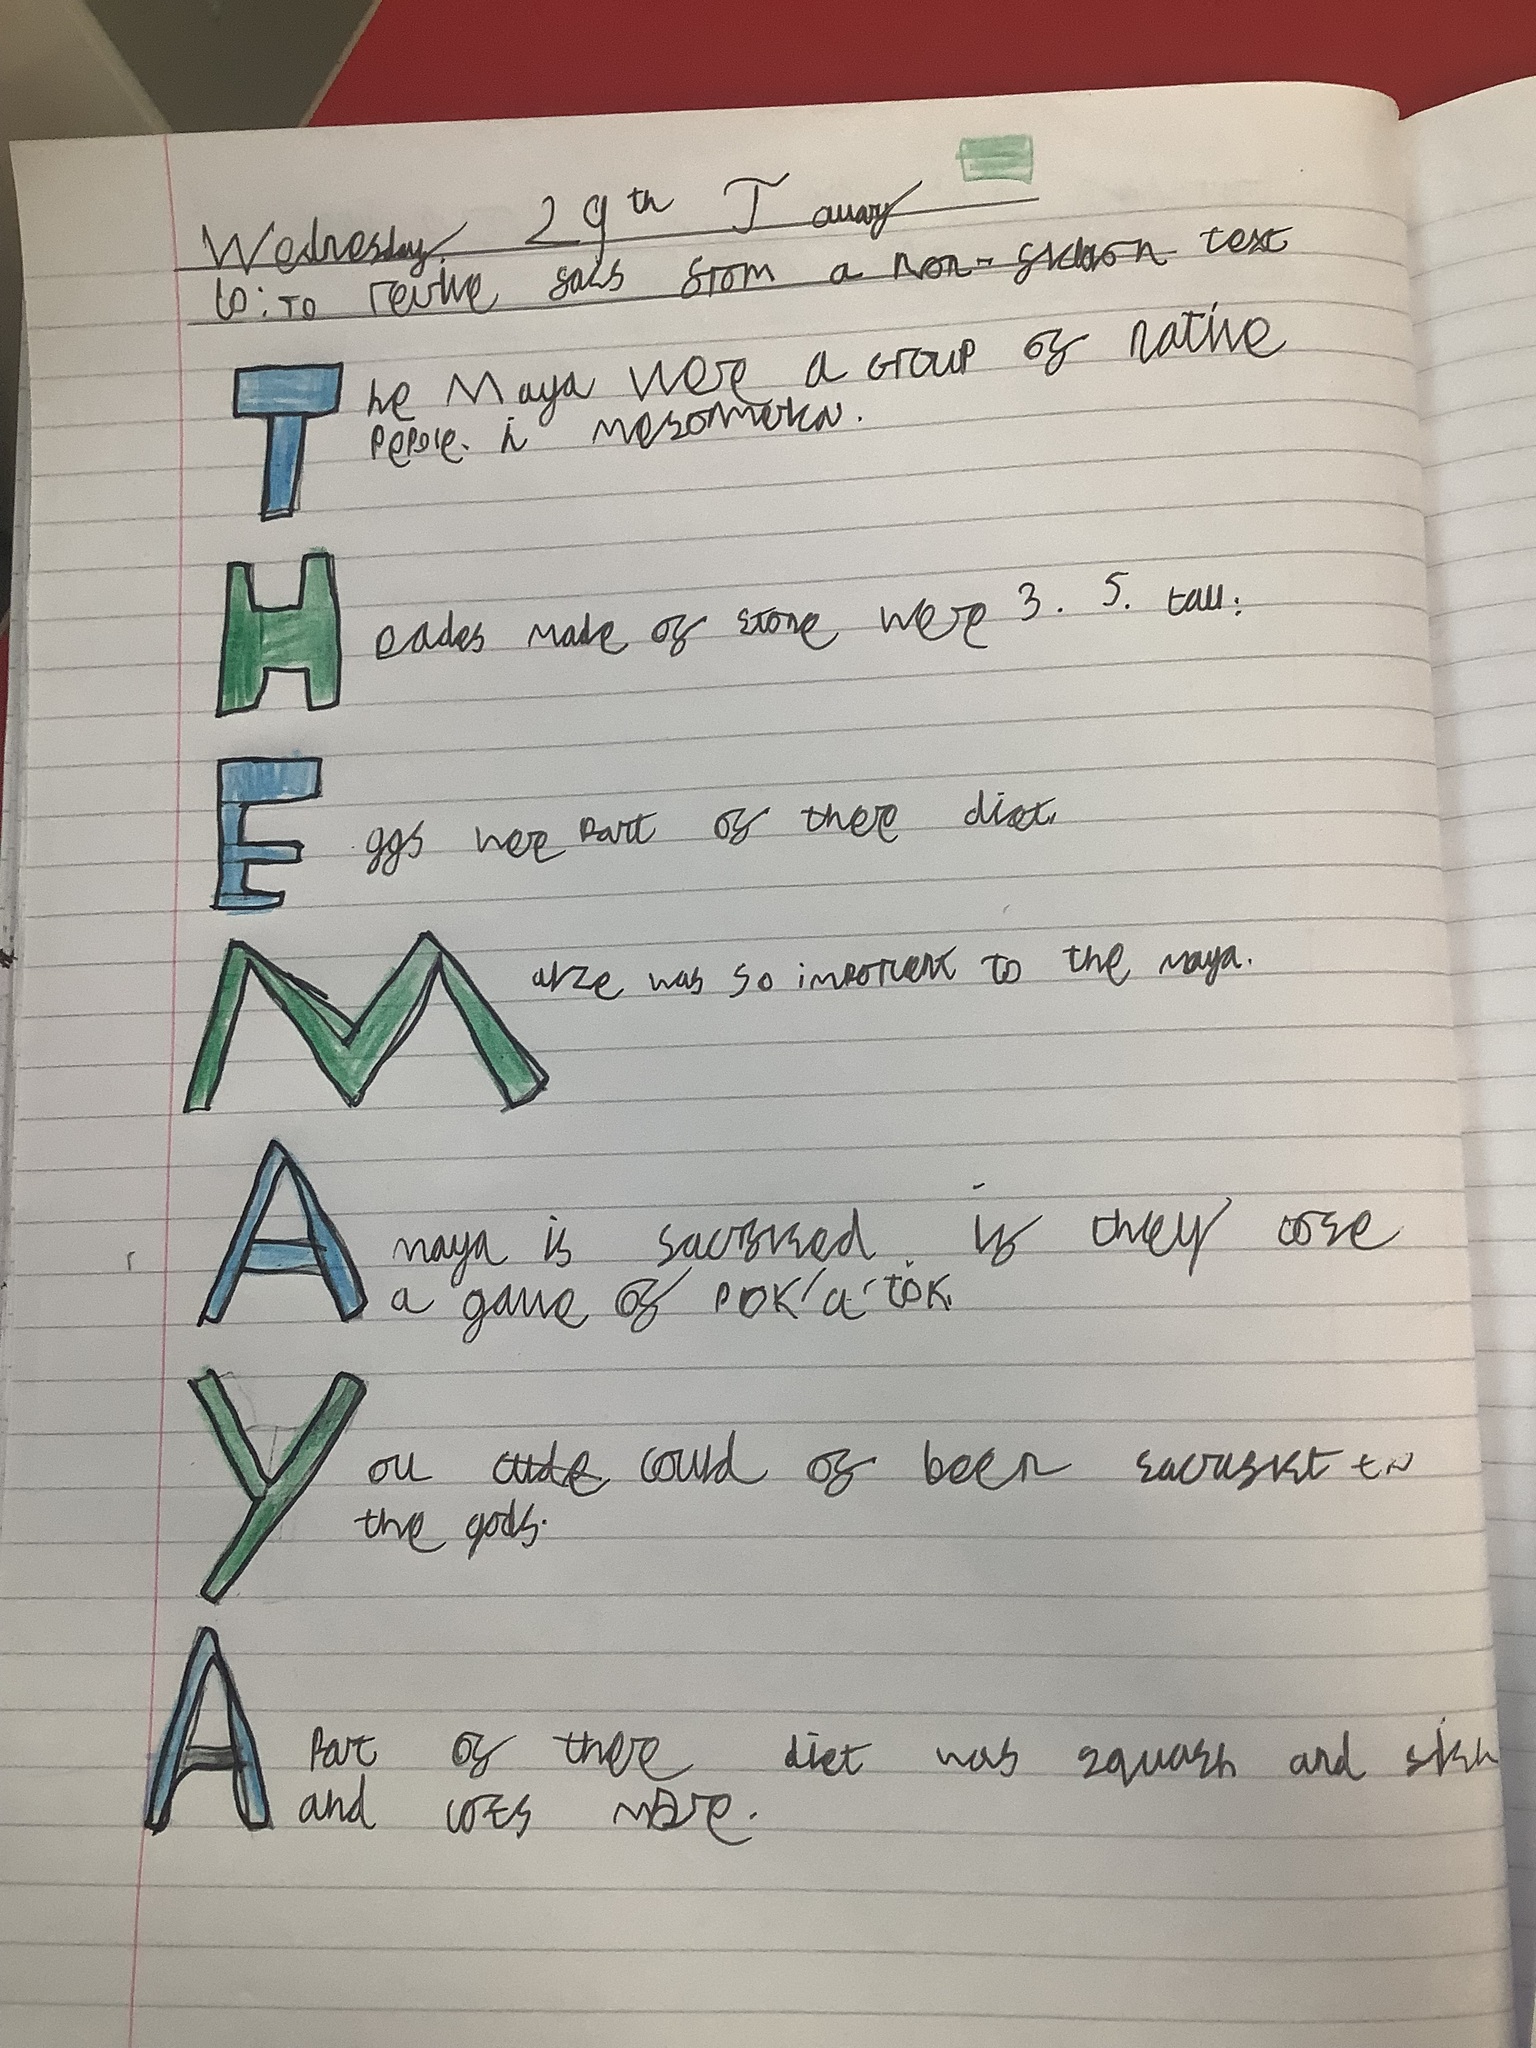 Wednesday 29th Jauary
LO: TO retrive facts from a non-fiction text
The Maya were a Group of native
Pepole. in mesomerica.
Heades made of stone were 3. 5. tall.
Eggs were Part of there diet.
Maize was so imporTent to the maya.
A maya is sacrificed if they lose
a game of POK'a'tok.
You could of been sacrifist to
the gods.
A Part of there diet was squash and fish
and lots more.